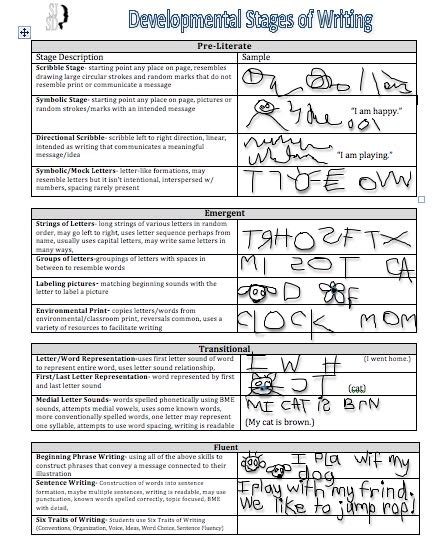 Developmental Stages of Writing
Pre-Literate
Stage Description Sample
Scribble Stage- starting point any place on page, resembles
drawing large circular strokes and random marks that do not
resemble print or communicate a message
Symbolic Stage- starting point any place on page, pictures or
random strokes/marks with an intended message
"I am happy."
Directional Scribble- scribble left to right direction, linear,
intended as writing that communicates a meaningful
message/idea
"I am playing."
Symbolic/Mock Letters- letter-like formations, may
resemble letters but it isn't intentional, interspersed w/
numbers, spacing rarely present
Emergent
Strings of Letters- long strings of various letters in random
order, may go left to right, uses letter sequence perhaps from
name, usually uses capital letters, may write same letters in
many ways,
Groups of letters-groupings of letters with spaces in
between to resemble words
Labeling pictures- matching beginning sounds with the
letter to label a picture
D F
Environmental Print- copies letters/words from
environmental/classroom print, reversals common, uses a
variety of resources to facilitate writing
CLOCK MOM
Transitional
Letter/Word Representation-uses first letter sound of word
to represent entire word, uses letter sound relationship,
I W H (I went home.)
First/Last Letter Representation- word represented by first
and last letter sound
(cat)
Medial Letter Sounds- words spelled phonetically using BME
sounds, attempts medial vowels, uses some known words,
more conventionally spelled words, one letter may represent
one syllable, attempts to use word spacing, writing is readable
MI CAT IS BRN
(My cat is brown.)
Fluent
Beginning Phrase Writing- using all of the above skills to
construct phrases that convey a message connected to their
illustration
I pla wif my
dog
Sentence Writing- Construction of words into sentence
formation, maybe multiple sentences, writing is readable, may use
punctuation, known words spelled correctly, topic focused, BME
with detail,
I play with my frind.
We like to jump rop!
Six Traits of Writing- Students use Six Traits of Writing
(Conventions, Organization, Voice, Ideas, Word Choice, Sentence Fluency)